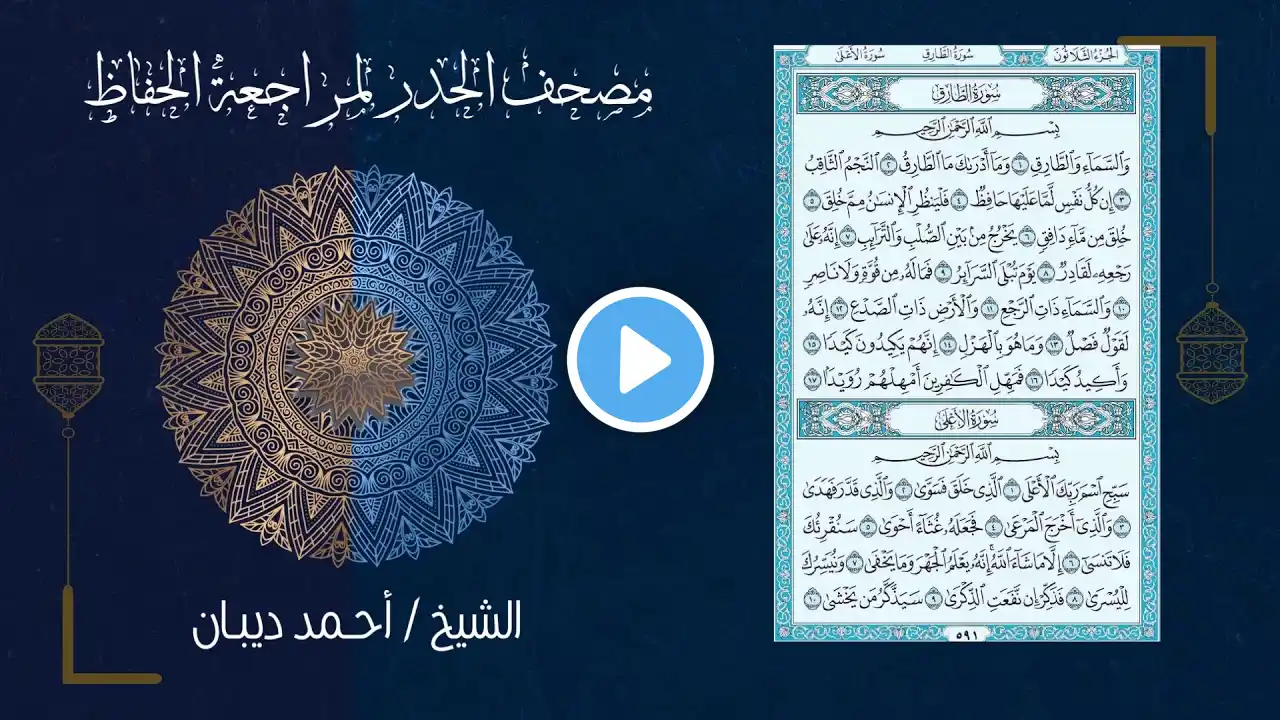 مصحف الحدر لمراجعة الحفاظ
الشيخ / أحمد ديبان
الجزء الثلاثون
سورة الطارق
سورة الأعلى
سُورَةُ الطَّارِقِ
بِسْمِ ٱللَّهِ ٱلرَّحْمَٰنِ ٱلرَّحِيمِ
وَٱلسَّمَآءِ وَٱلطَّارِقِ ١ وَمَآ أَدْرَىٰكَ مَا ٱلطَّارِقُ ٢ ٱلنَّجْمُ ٱلثَّاقِبُ
٣ إِن كُلُّ نَفْسٍ لَّمَّا عَلَيْهَا حَافِظٌ ٤ فَلْيَنظُرِ ٱلْإِنسَٰنُ مِمَّ خُلِقَ ٥
خُلِقَ مِن مَّآءٍ دَافِقٍ ٦ يَخْرُجُ مِنۢ بَيْنِ ٱلصُّلْبِ وَٱلتَّرَآئِبِ ٧ إِنَّهُۥ عَلَىٰ
رَجْعِهِۦ لَقَادِرٌ ٨ يَوْمَ تُبْلَى ٱلسَّرَآئِرُ ٩ فَمَا لَهُۥ مِن قُوَّةٍ وَلَا نَاصِرٍ
١٠ وَٱلسَّمَآءِ ذَاتِ ٱلرَّجْعِ ١١ وَٱلْأَرْضِ ذَاتِ ٱلصَّدْعِ ١٢ إِنَّهُۥ
لَقَوْلٌ فَصْلٌ ١٣ وَمَا هُوَ بِٱلْهَزْلِ ١٤ إِنَّهُمْ يَكِيدُونَ كَيْدًا ١٥
وَأَكِيدُ كَيْدًا ١٦ فَمَهِّلِ ٱلْكَٰفِرِينَ أَمْهِلْهُمْ رُوَيْدًۢا ١٧
سُورَةُ الأَعْلَى
بِسْمِ ٱللَّهِ ٱلرَّحْمَٰنِ ٱلرَّحِيمِ
سَبِّحِ ٱسْمَ رَبِّكَ ٱلْأَعْلَى ١ ٱلَّذِى خَلَقَ فَسَوَّىٰ ٢ وَٱلَّذِى قَدَّرَ فَهَدَىٰ
٣ وَٱلَّذِىٓ أَخْرَجَ ٱلْمَرْعَىٰ ٤ فَجَعَلَهُۥ غُثَآءً أَحْوَىٰ ٥ سَنُقْرِئُكَ
فَلَا تَنسَىٰٓ ٦ إِلَّا مَا شَآءَ ٱللَّهُ ۚ إِنَّهُۥ يَعْلَمُ ٱلْجَهْرَ وَمَا يَخْفَىٰ ٧ وَنُيَسِّرُكَ
لِلْيُسْرَىٰ ٨ فَذَكِّرْ إِن نَّفَعَتِ ٱلذِّكْرَىٰ ٩ سَيَذَّكَّرُ مَن يَخْشَىٰ ١٠
٥٩١